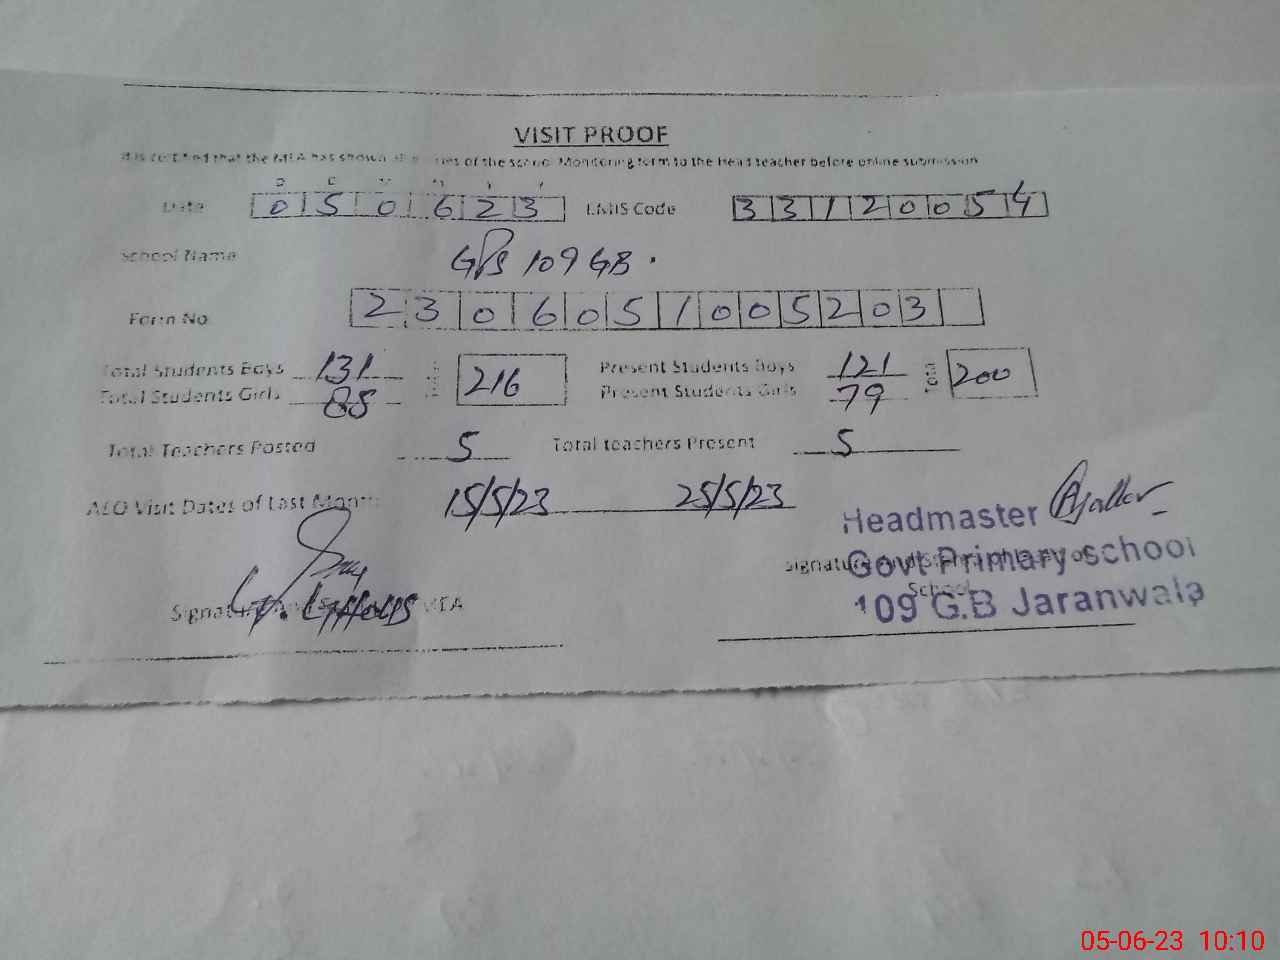 VISIT PROOF
It is certified that the MEA has shown all entries of the school Monitoring form to the Head teacher before online submission
D D M M Y Y
Date 050623 EMIS Code 33120054
School Name GPS 109 GB.
Form No 2306051005203
Total Students Boys 131 Total 216 Present Students Boys 121 Total 200
Total Students Girls 85 Present Students Girls 79
Total Teachers Posted 5 Total teachers Present 5
AEO Visit Dates of Last Month 15/5/23 25/5/23
Headmaster
Govt Primary school
109 G.B Jaranwala
Signature and Stamp of
School
Signature MEA
05-06-23 10:10